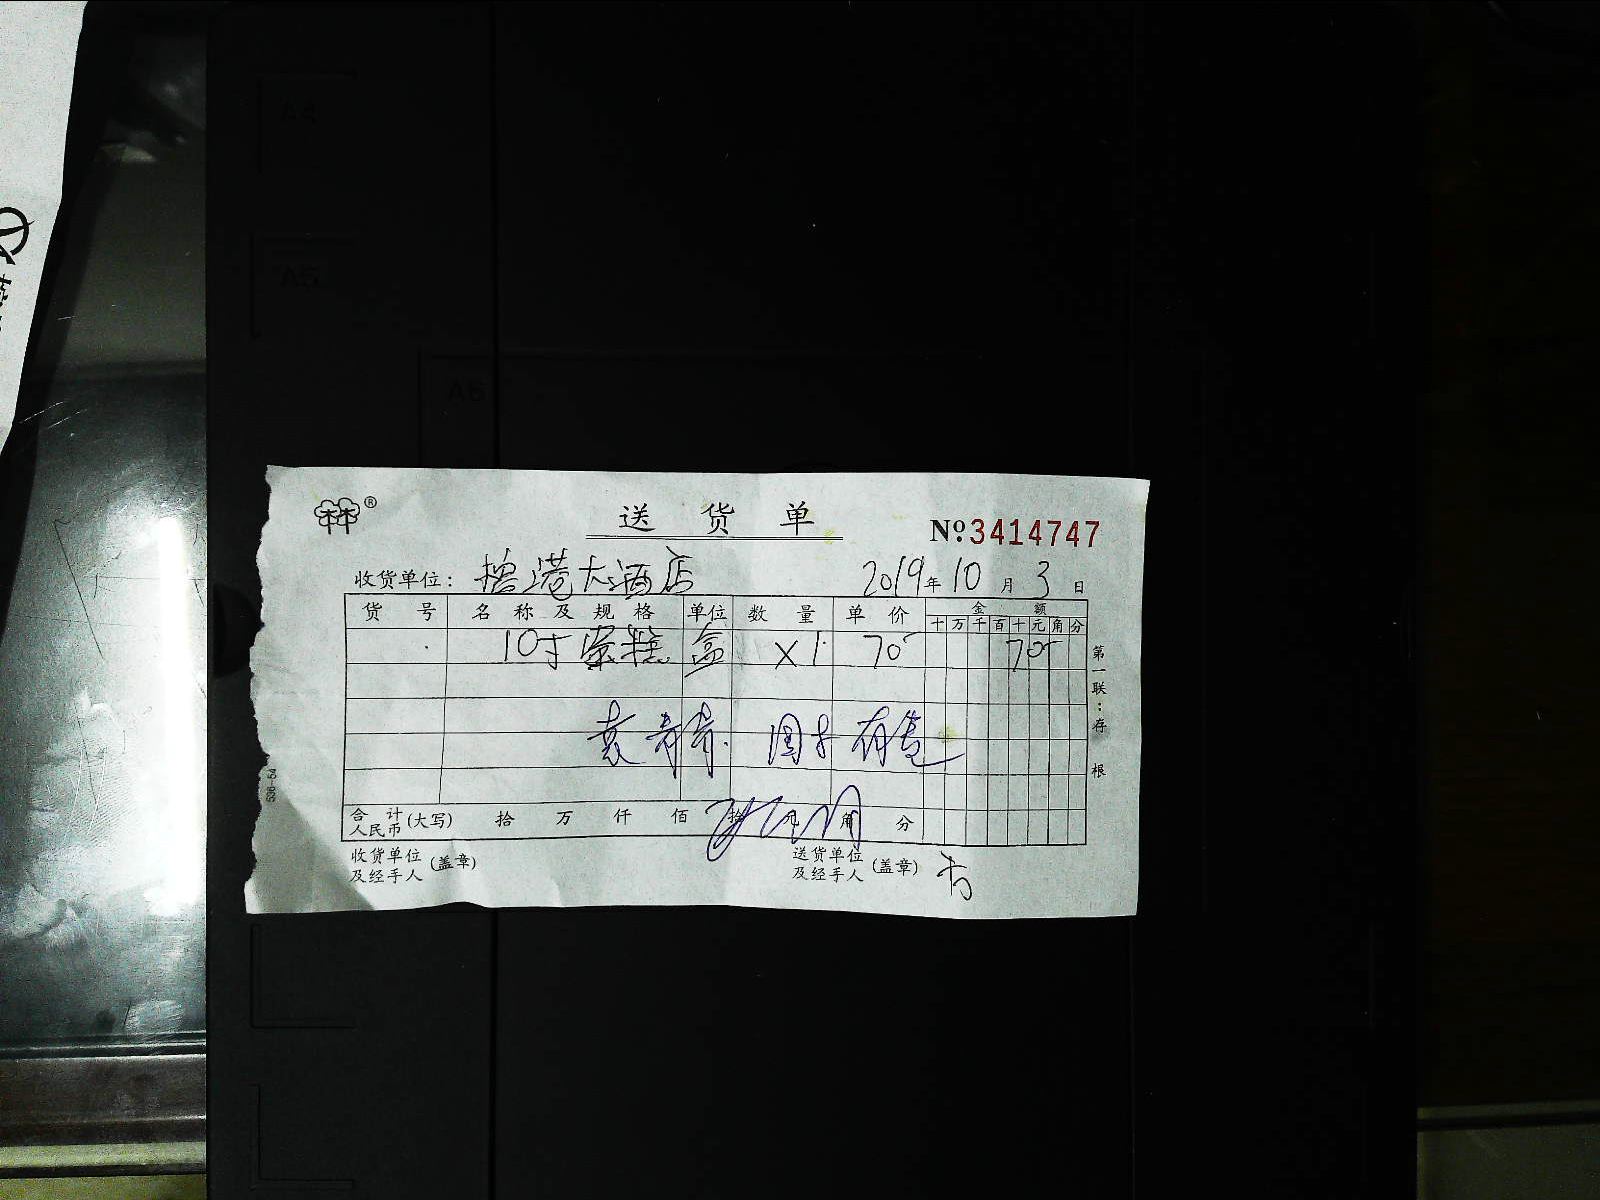 A4
A5
A6
®
送货单
Nº3414747
收货单位: 港大酒店 2019年10月3日
货号 名称及规格 单位 数量 单价 金额
十万千百十元角分
10寸蛋糕 盒 x1 70 70
第一联:存根
合计人民币(大写) 拾 万 仟 佰 拾 元 角 分
收货单位及经手人(盖章) 送货单位及经手人(盖章)